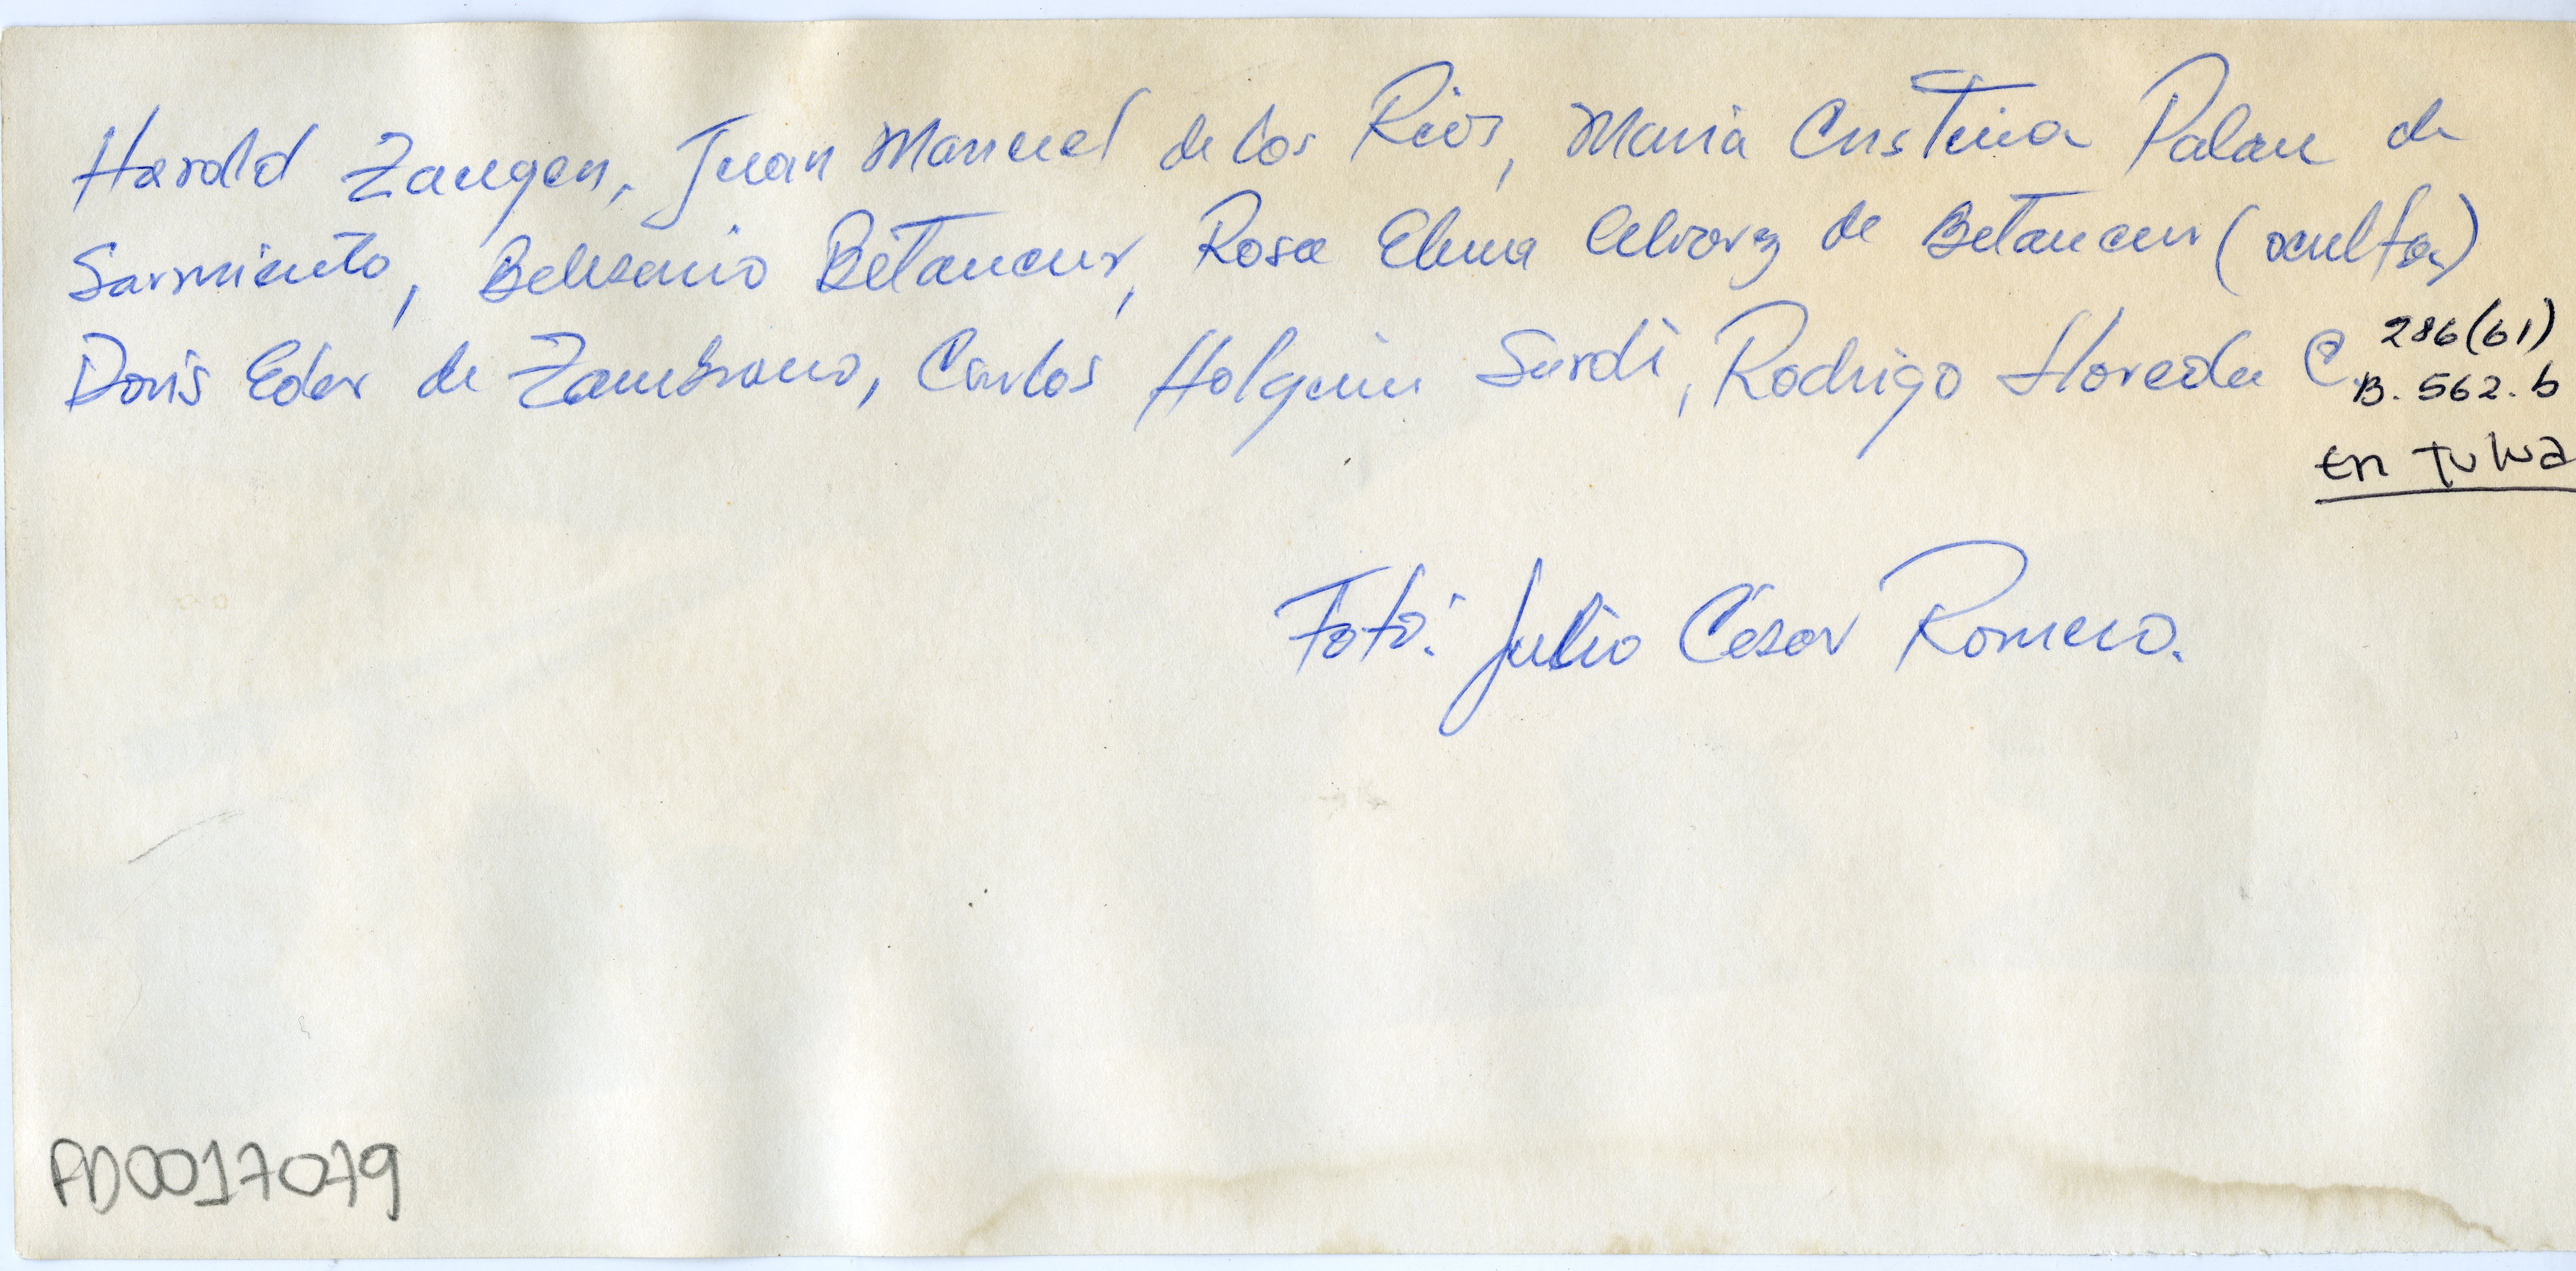 Harold Zangen, Juan Manuel de los Rios, Maria Cristina Palau de
Sarmiento, Belisario Betancur, Rosa Elena Alvarez de Betancur (oculta)
Doris Eder de Zambrano, Carlos Holguin Sardi, Rodrigo Lloreda C.
286(61)
B. 562.b
en tulua
Foto: Julio César Romero.
FD0017079